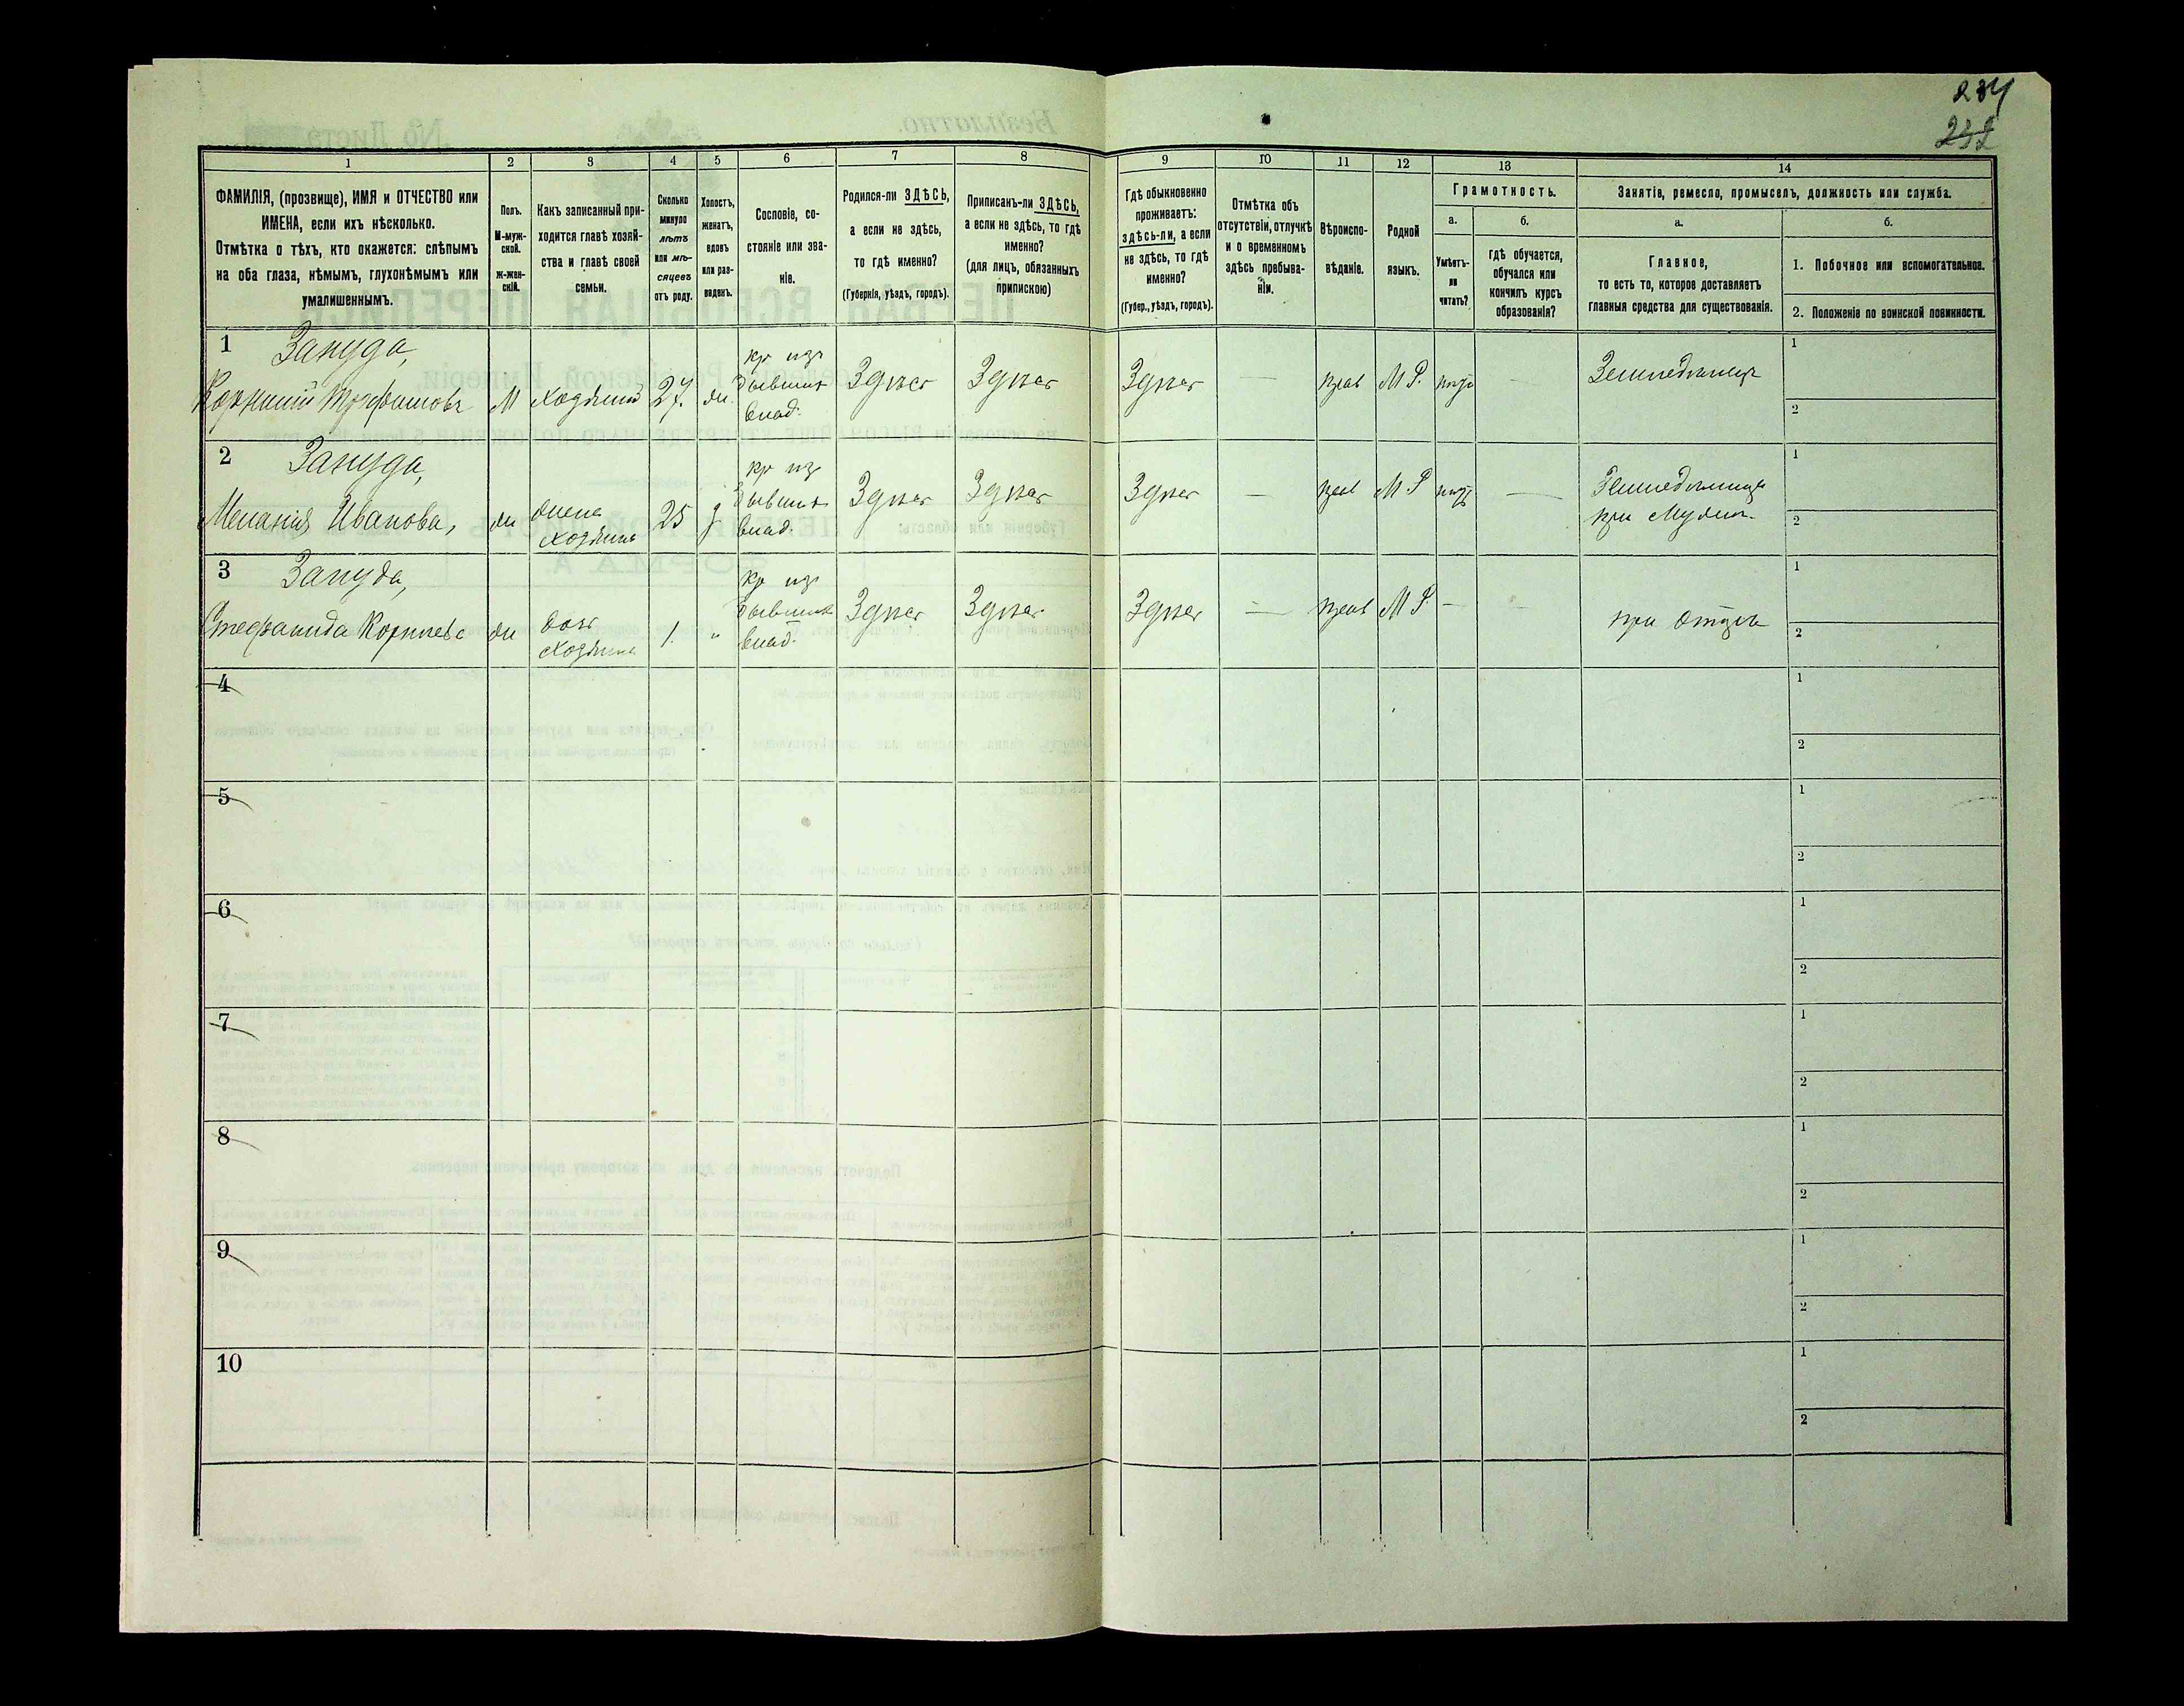 234
232
1
2
3
4
5
6
7
8
9
10
11
12
13
14
ФАМИЛІЯ, (прозвище), ИМЯ и ОТЧЕСТВО или
ИМЕНА, если ихъ нѣсколько.
Отмѣтка о тѣхъ, кто окажется: слѣпымъ
на оба глаза, нѣмымъ, глухонѣмымъ или
умалишеннымъ.
Полъ.
М-муж-
ской.
ж-жен-
скій.
Какъ записанный при-
ходится главѣ хозяй-
ства и главѣ своей
семьи.
Сколько
минуло
лѣтъ
или мѣ-
сяцевъ
отъ роду.
Холостъ,
женатъ,
вдовъ
или раз-
веденъ.
Сословіе, со-
стояніе или зва-
ніе.
Родился-ли ЗДѢСЬ,
а если не здѣсь,
то гдѣ именно?
(Губернія, уѣздъ, городъ).
Приписанъ-ли ЗДѢСЬ,
а если не здѣсь, то гдѣ
именно?
(для лицъ, обязанныхъ
припискою)
Гдѣ обыкновенно
проживаетъ:
здѣсь-ли, а если
не здѣсь, то гдѣ
именно?
(Губер., уѣздъ, городъ).
Отмѣтка объ
отсутствіи, отлучкѣ
и о временномъ
здѣсь пребыва-
ніи.
Вѣроиспо-
вѣданіе.
Родной
языкъ.
Грамотность.
а.
Умѣетъ-
ли
читать?
б.
гдѣ обучается,
обучался или
кончилъ курсъ
образованія?
Занятіе, ремесло, промыселъ, должность или служба.
а.
Главное,
то есть то, которое доставляетъ
главныя средства для существованія.
б.
1. Побочное или вспомогательное.
2. Положеніе по воинской повинности.
1 Зануда,
Корнилій Трофимовъ М Хозяинъ 27 ж. кр изъ бывших влад. Здѣсь Здѣсь Здѣсь — прав М Р. нѣтъ — Земледѣлецъ
1
2
2 Зануда,
Меланія Иванова, ж жена хозяина 25 з кр из бывших влад. Здѣсь Здѣсь Здѣсь — прав М Р нѣтъ — Земледѣлица
при Мужѣ.
1
2
3 Зануда,
Стефанида Корнıева ж дочь хозяина 1 „ кр из бывших влад. Здѣсь Здѣсь Здѣсь — прав М Р. — — при Отцѣ
1
2
4
1
2
5
1
2
6
1
2
7
1
2
8
1
2
9
1
2
10
1
2